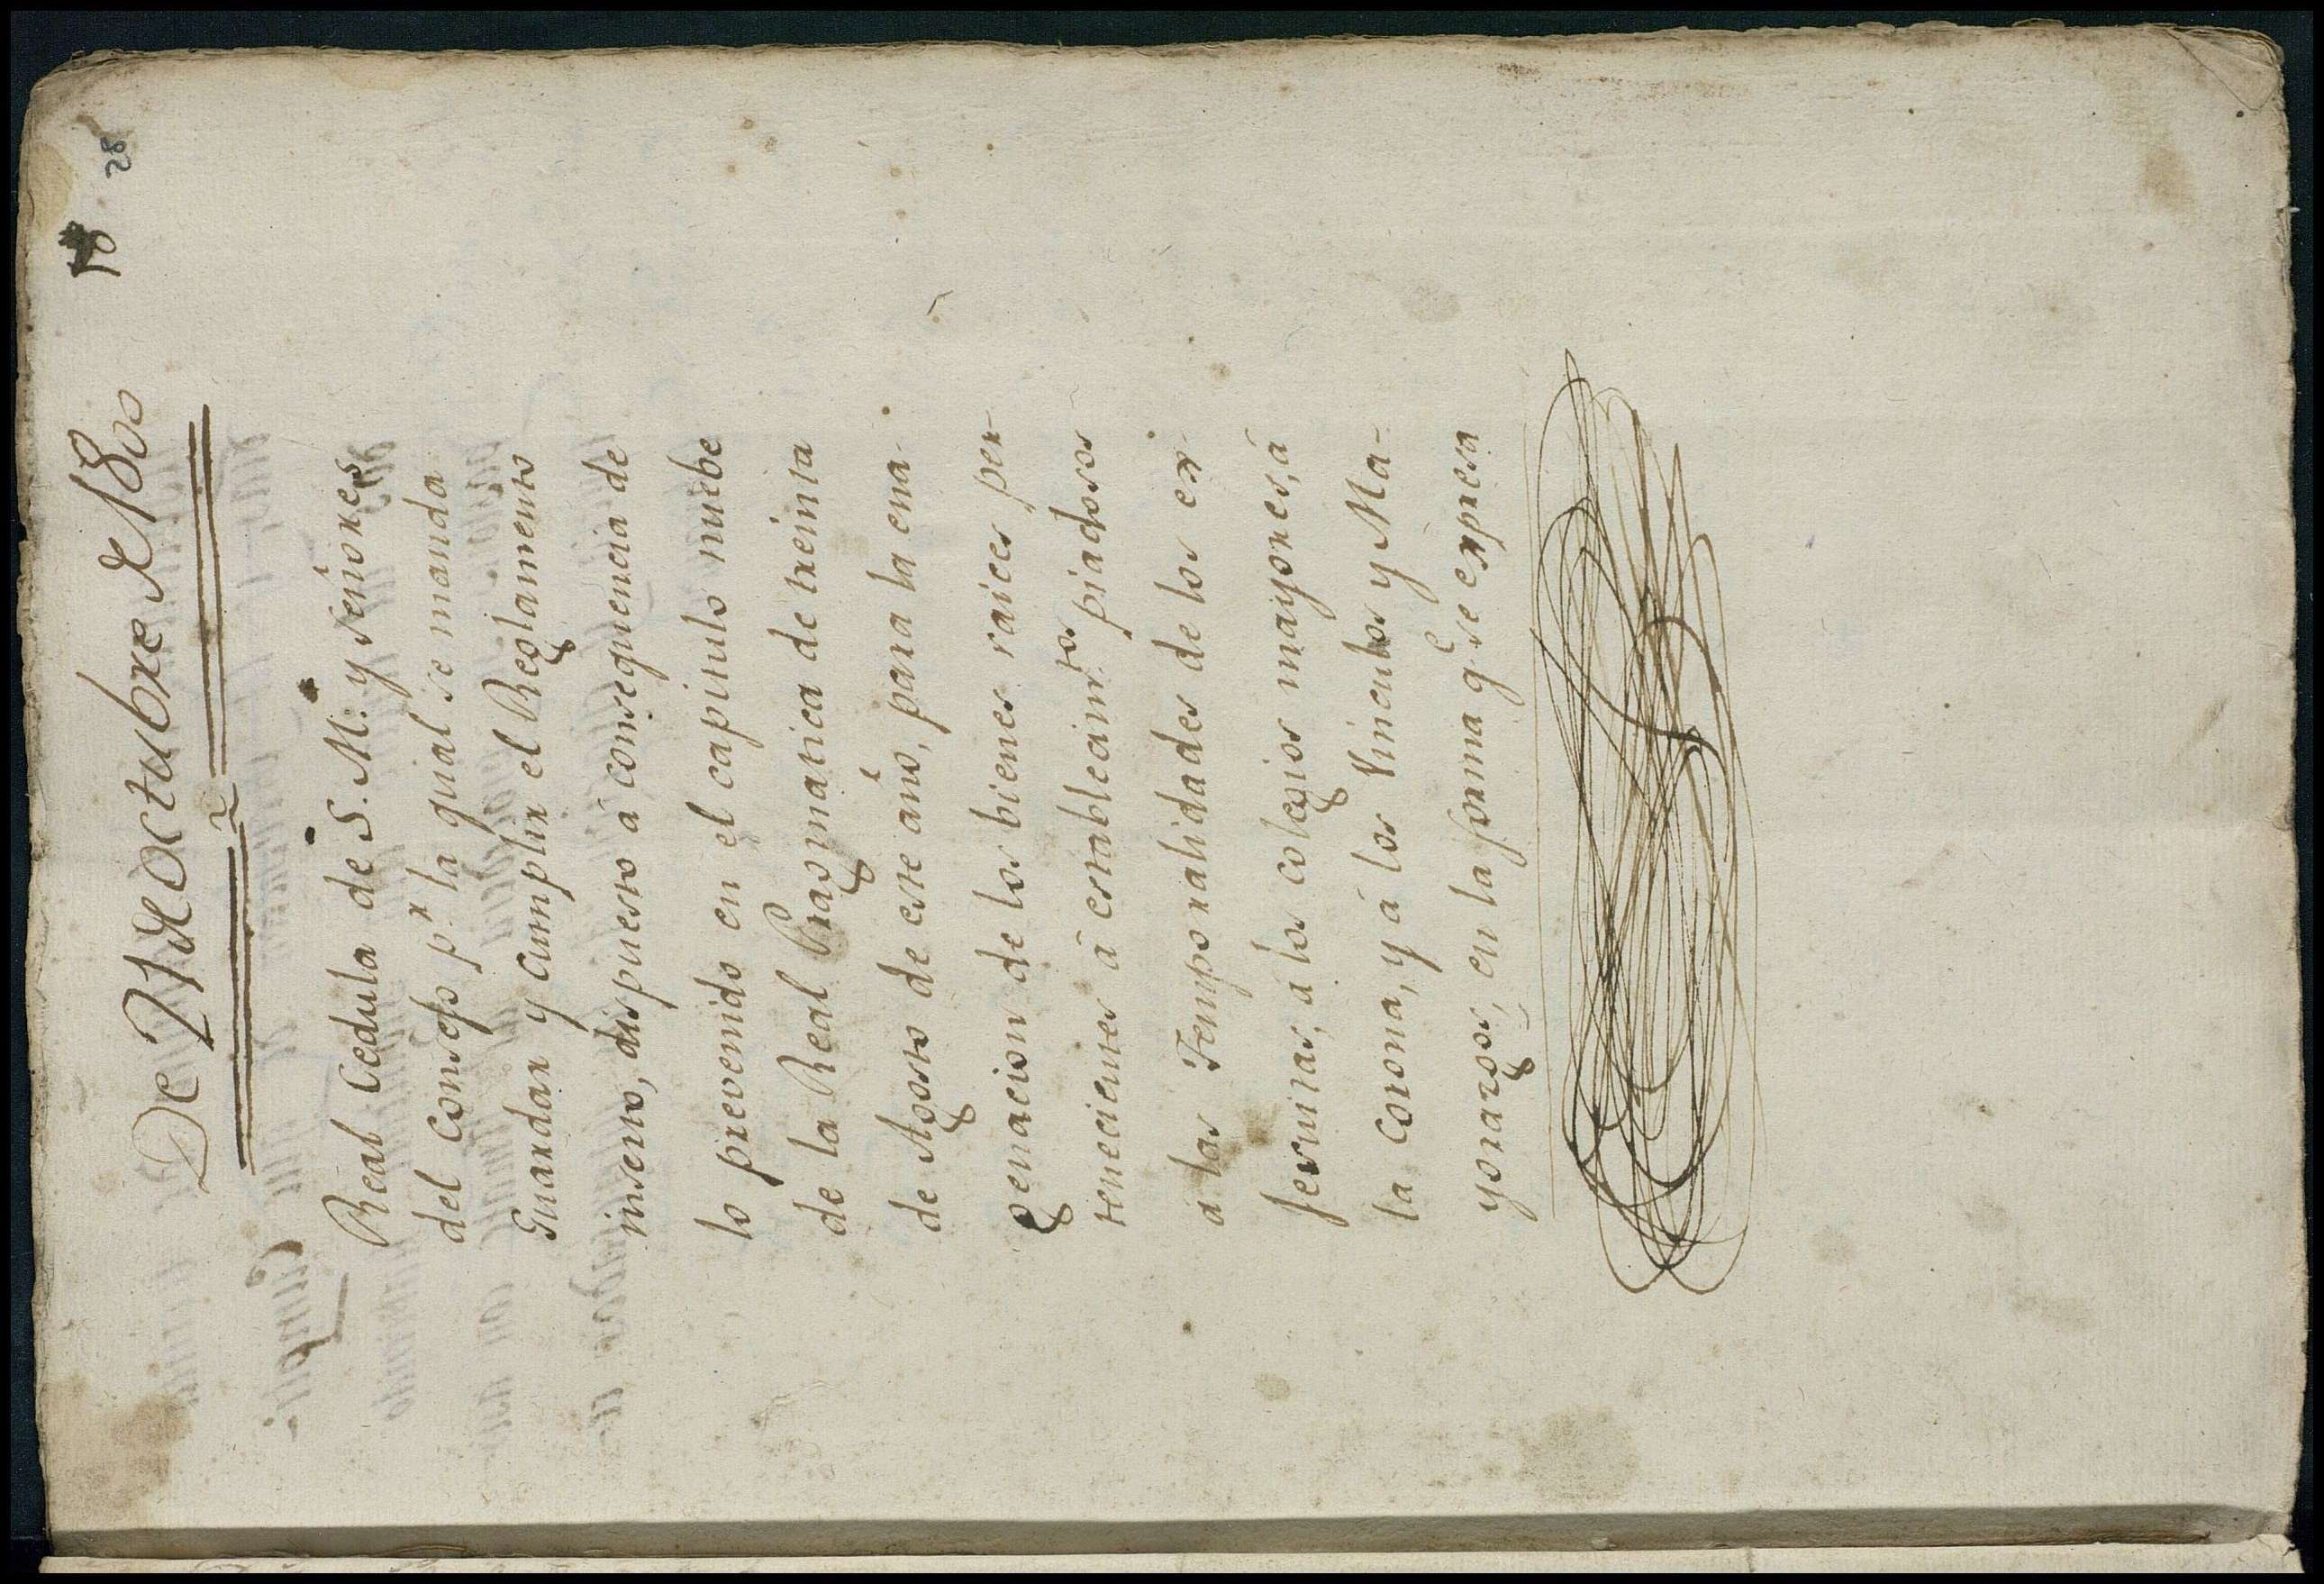 28
De 21 de Octubre de 1800
Real Cedula de S. M. y señores
del Consejo pr. la qual se manda
Guardar y cumplir el Reglamento
inserto, dispuesto á consequencia de
lo prevenido en el capitulo nuebe
de la Real Pragmatica de treinta
de Agosto de este año, para la ena-
genacion de los bienes raices per-
tenecientes á establecimtos piadosos
á las Temporalidades de los ex-
Jesuitas, á los colegios mayores, á
la Corona, y á los Vinculos y Ma-
yorazgos, en la forma qe. se expresa